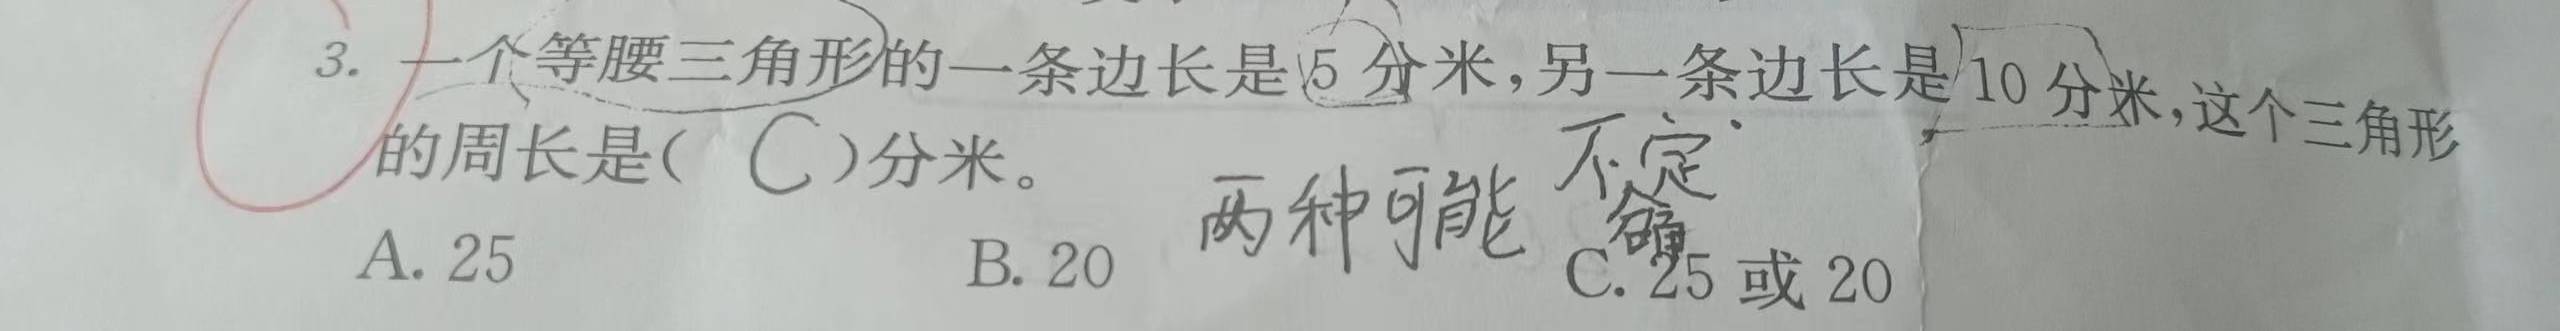 3. 一个等腰三角形的一条边长是5分米,另一条边长是10分米,这个三角形
的周长是( C )分米。
两种可能 不确定
A. 25 B. 20 C. 25 或 20